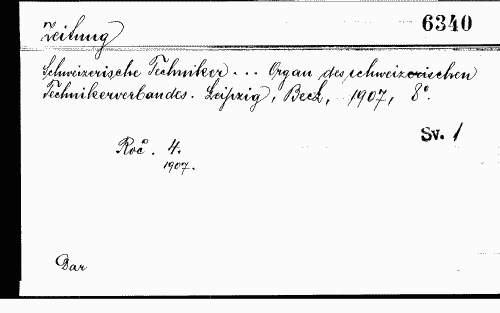 Zeitung 6340
Schweizerische Techniker ... Organ des schweizerischen
Technikerverbandes. Leipzig, Beck, 1907, 8°.
Sv. 1
Roč. 4.
1907.
Dar